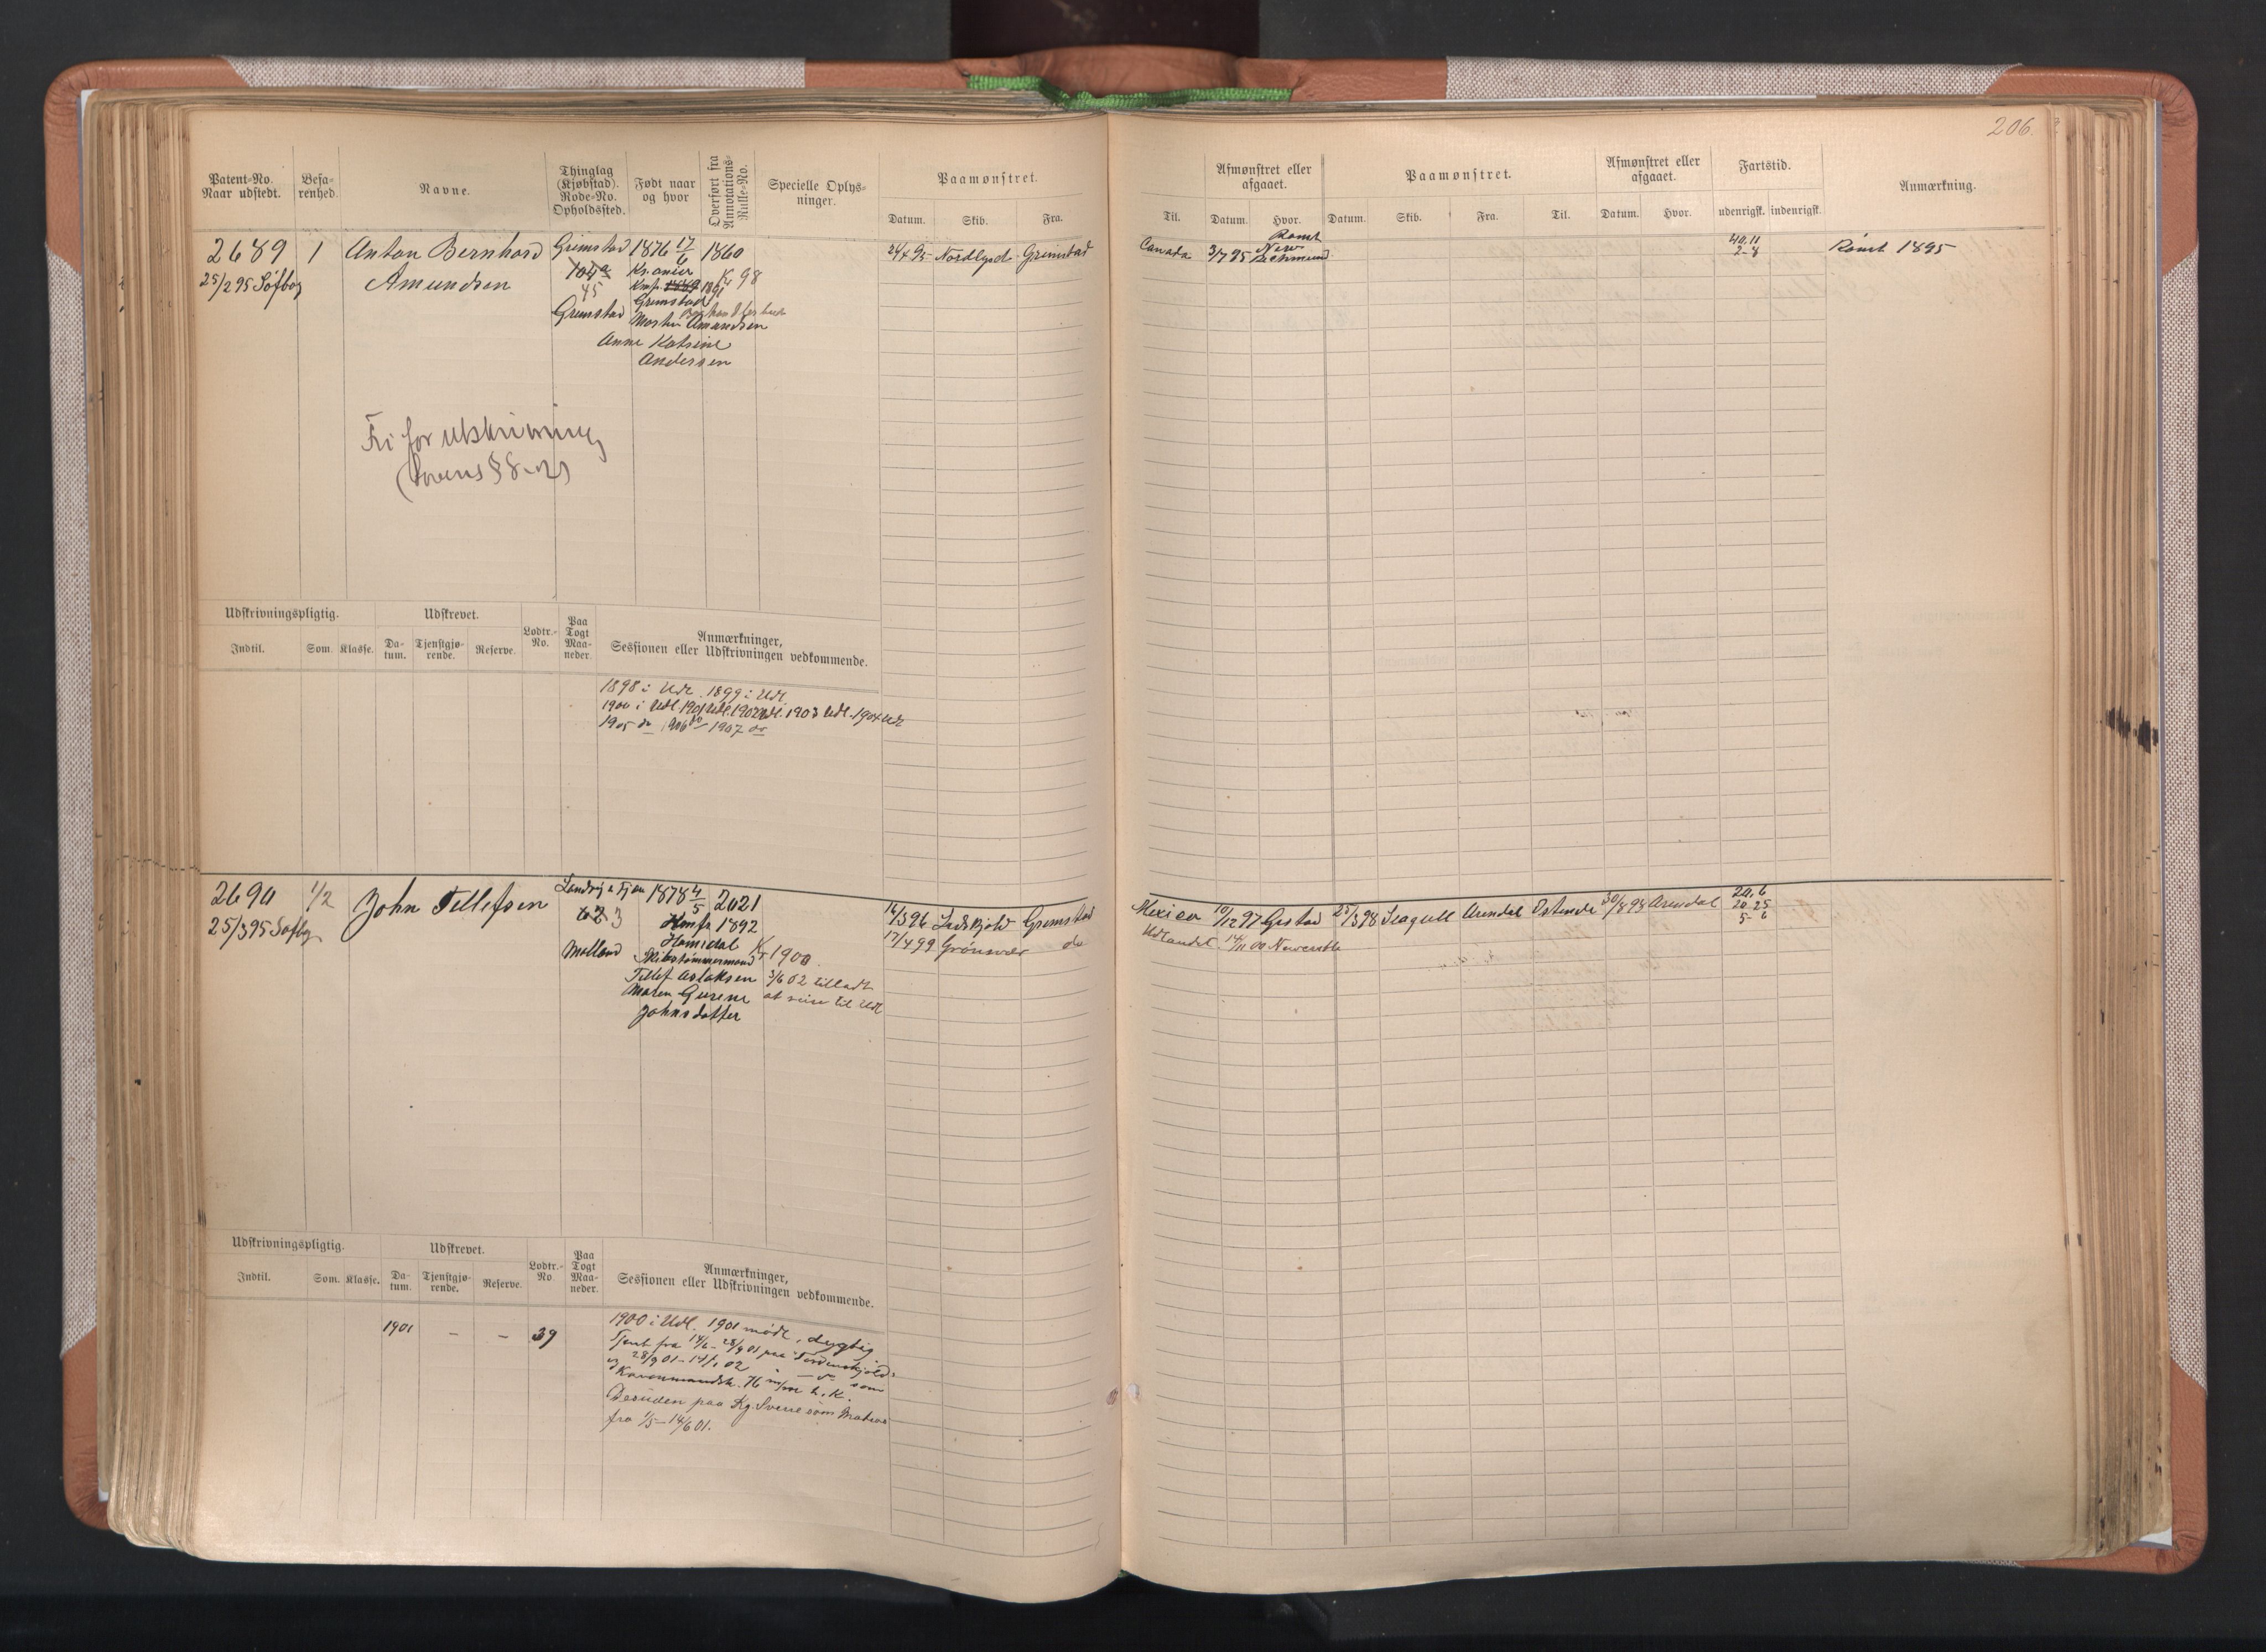 206.
Patent-No. Naar udstedt.
Befa-renhed.
Navne.
Thinglag (Kjøbstad). Rode-No. Opholdssted.
Født naar og hvor
Overført fra Annotations-Rulle-No.
Specielle Oplys-ninger.
Paamønstret.
Datum. Skib. Fra.
Til.
Afmønstret eller afgaaet.
Datum. Hvor.
Paamønstret.
Datum. Skib. Fra. Til.
Afmønstret eller afgaaet.
Datum. Hvor.
Fartstid.
udenrigsk. indenrigsk.
Anmærkning.
2689 1 Anton Bernhard Grimstad 1876 17/6 1860
25/2 95 Søfbog Amundsen 104a
45
K 98
Grimstad
Grimstad
Morten Amundsen
Anne Katrine
Andersen
24/4 95 Nordlyset Grimstad
Canada 3/7 95 New Richmund
Rømt
40.11
2-8
Rømt 1895
Fri for Udskrivning
(Lovens § 8-2)
Udskrivningspligtig.
Indtil. Som. Klasse.
Udskrevet.
Da-tum. Tjenstgjø-rende. Reserve.
Lodtr.-No.
Paa Togt Maa-neder.
Anmærkninger,
Sessionen eller Udskrivningen vedkommende.
1898 i Udl. 1899 i Udl.
1900 i Udl. 1901 Udl. 1902 Udl. 1903 Udl. 1904 Udl
1905 do 1906 do 1907 do
2690 1/2 John Tellefsen 1878 4/5 2021
25/3 95 Søfbog 62 3
Konf. 1892
Molland
K 1900
Skibstømmermand
Tellef Aslaksen 3/6 02 tilladt
Maren Gurine at reise til Udl
Johnsdatter
14/3 96 Grimstad
17/4 99 Grønsvær do
Mexico 10/12 97 Grstad 25/3 98 Seagull Arendal Ostende 30/8 98 Arendal
Udlandet. 14/11 00 Newcastle
20.6
20.25
5-6
Udskrivningspligtig.
Indtil. Som. Klasse.
Udskrevet.
Da-tum. Tjenstgjø-rende. Reserve.
Lodtr.-No
Paa Togt Maa-neder.
Anmærkninger,
Sessionen eller Udskrivningen vedkommende.
1901 — — 39
1900 i Udl. 1901 mødt, dygtig
Tjent fra 14/6 - 28/9 01 paa Tordenskjold
og 28/9 01 - 14/1 02 — do som
Kanonmandsk. 76 m/m h.k.
Desuden paa Kg. Sverre som Matros
fra 1/5 - 14/6 01.